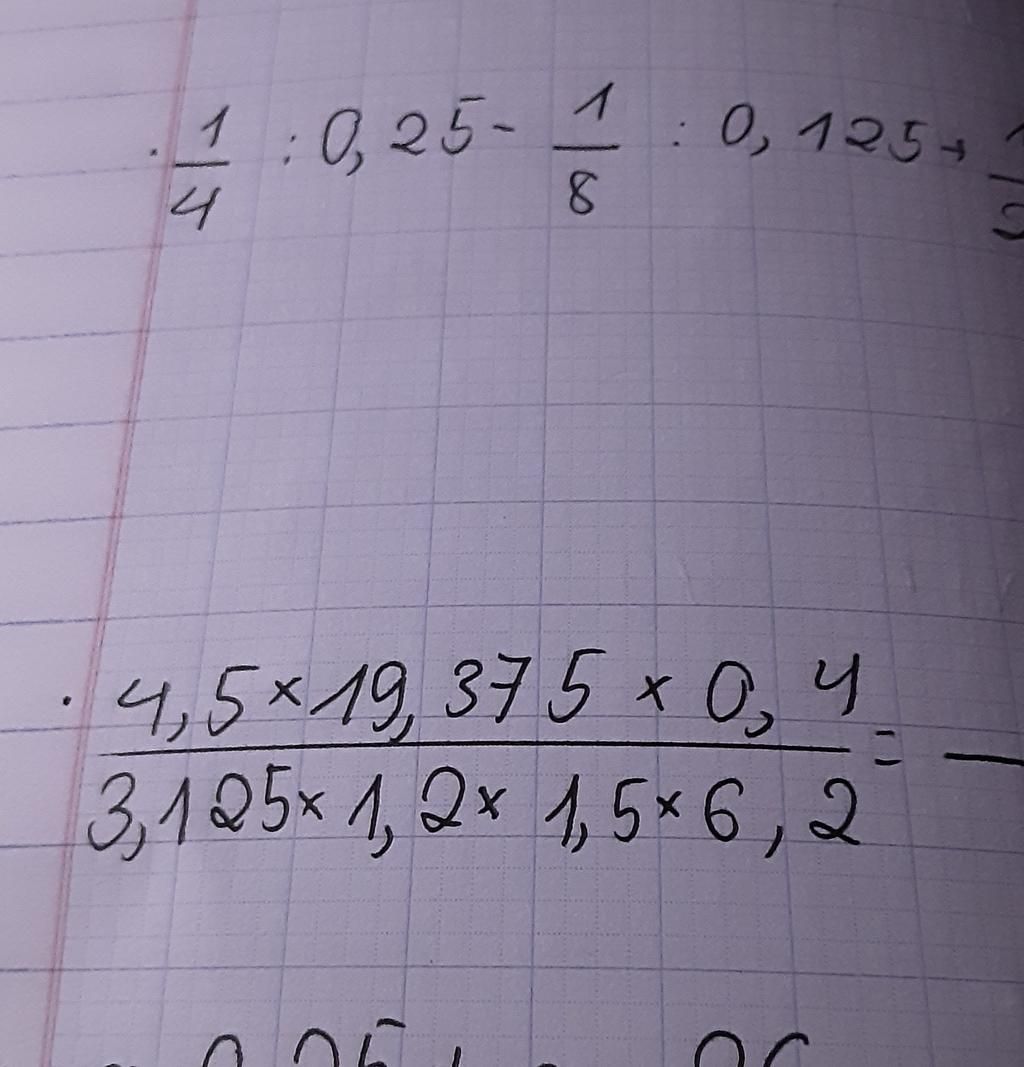 . 1/4 : 0,25 - 1/8 : 0,125 +
. 4,5 × 19,375 × 0,4 / 3,125 × 1,2 × 1,5 × 6,2 = —